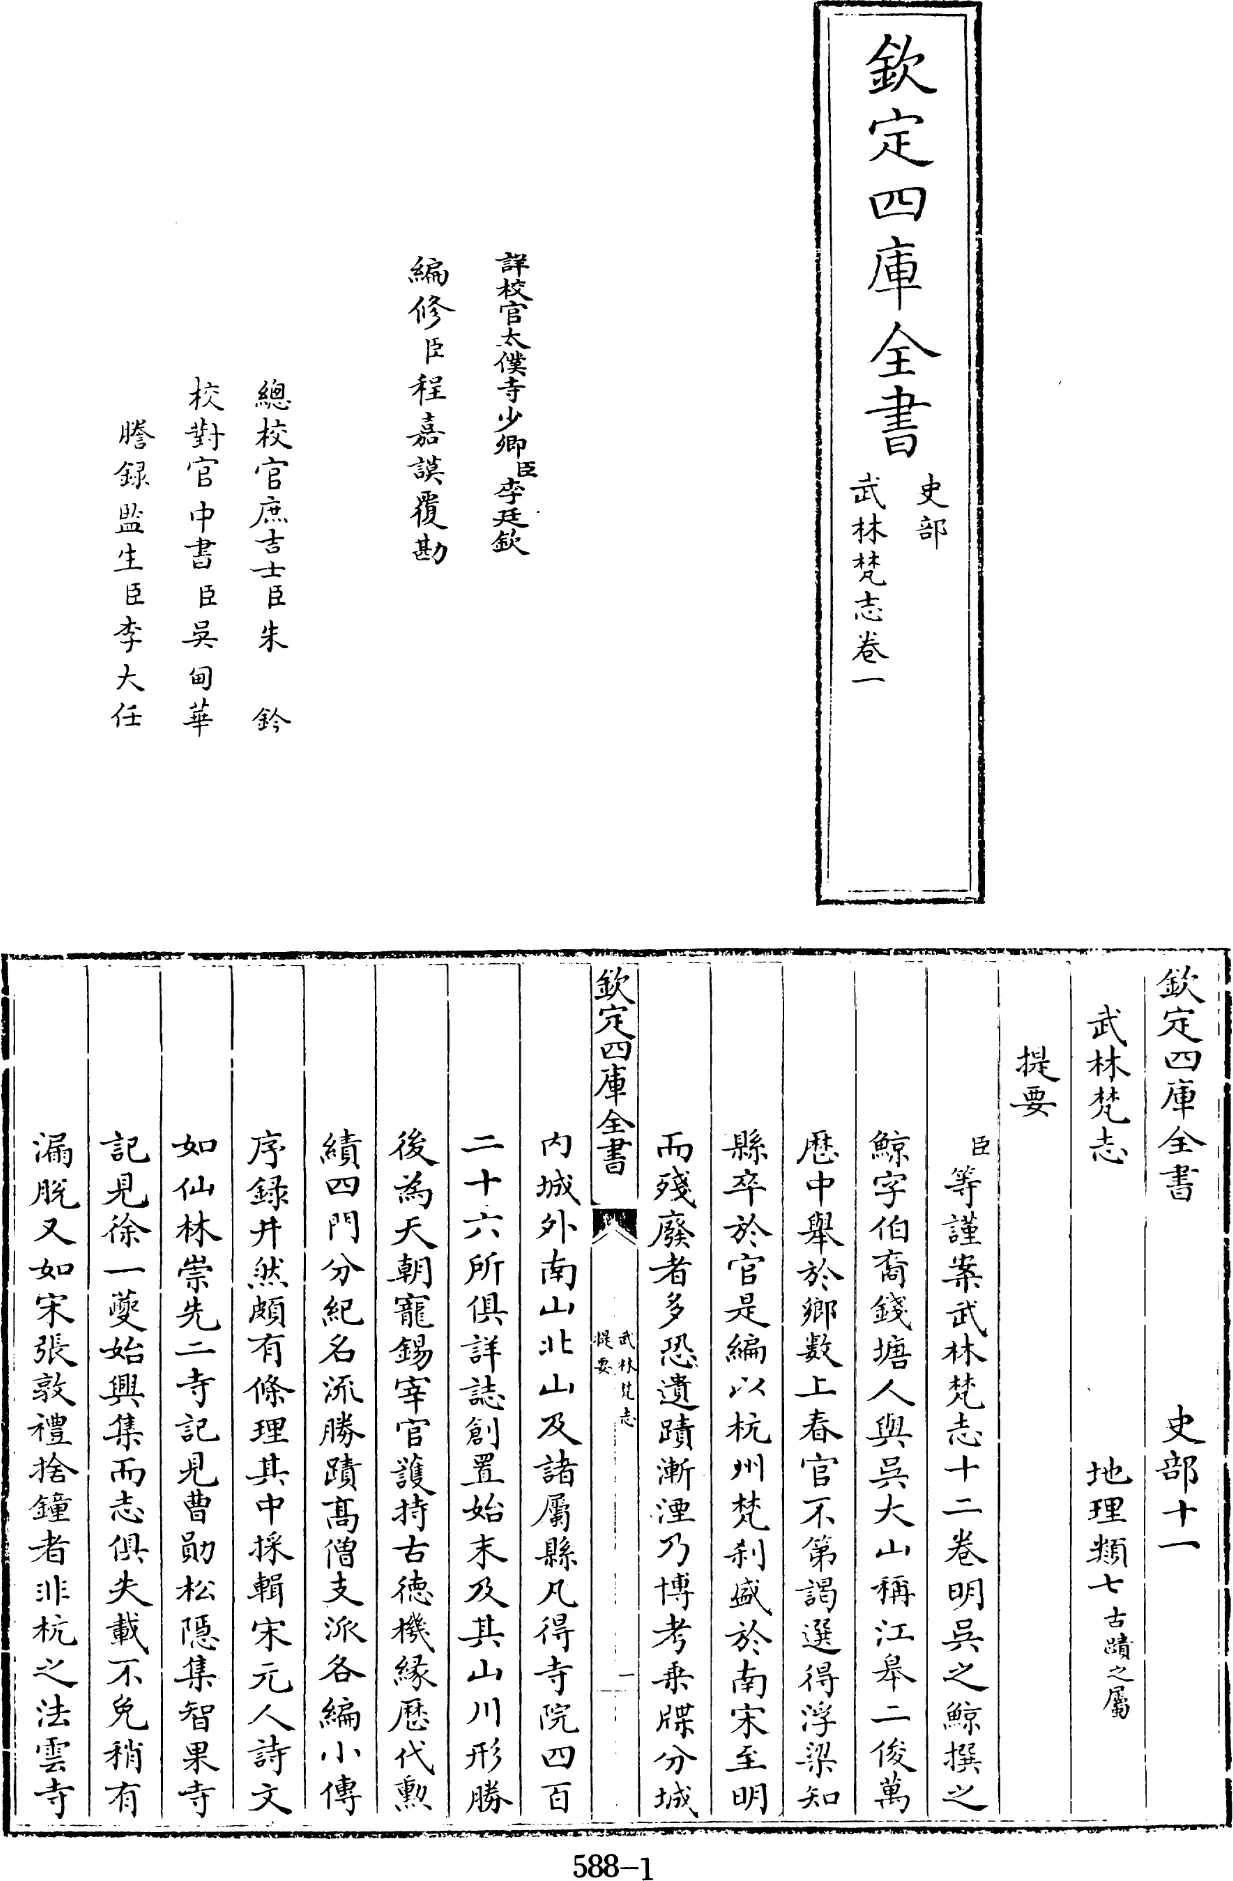 欽定四庫全書
史部
武林梵志卷一
詳校官太僕寺少卿臣李廷欽
編修臣程嘉謨覆勘
總校官庶吉士臣朱鈐
校對官中書臣吳甸華
謄録監生臣李大任
欽定四庫全書 史部十一
武林梵志 地理類七古蹟之屬
提要
臣等謹案武林梵志十二卷明吳之鯨撰之
鯨字伯裔錢塘人與吳大山稱江皋二俊萬
歴中舉於鄉數上春官不第謁選得浮梁知
縣卒於官是編以杭州梵刹盛於南宋至明
而殘廢者多恐遺蹟漸湮乃博考乗牒分城
欽定四庫全書
武林梵志
提要
一
内城外南山北山及諸屬縣凡得寺院四百
二十六所俱詳誌創置始末及其山川形勝
後為天朝寵錫宰官護持古徳機緣歴代勲
績四門分紀名流勝蹟髙僧支派各編小傳
序録井然頗有條理其中採輯宋元人詩文
如仙林崇先二寺記見曹勛松隠集智果寺
記見徐一夔始興集而志俱失載不免稍有
漏脱又如宋張敦禮捨鐘者非杭之法雲寺
588-1